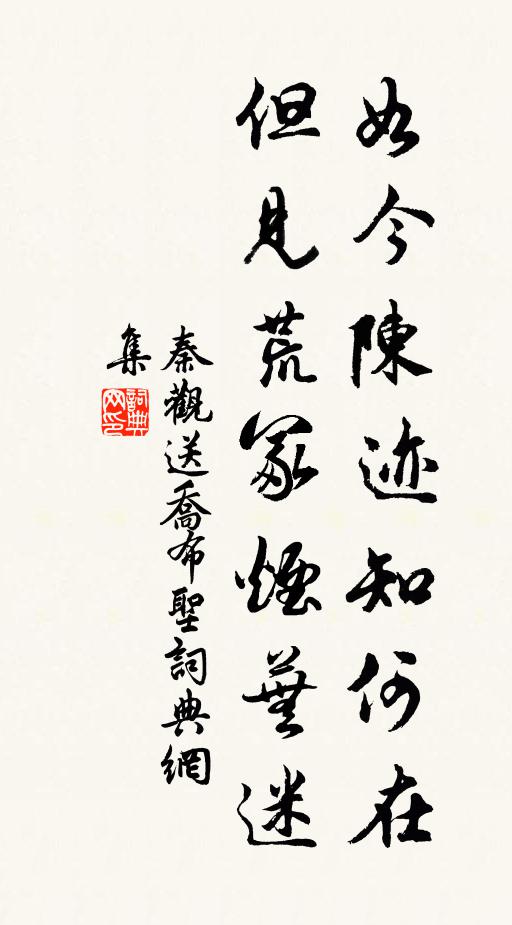 如今陳迹知何在
但見荒冢煙蕪迷
秦觀送喬希聖詞典網
集
詞典
网印